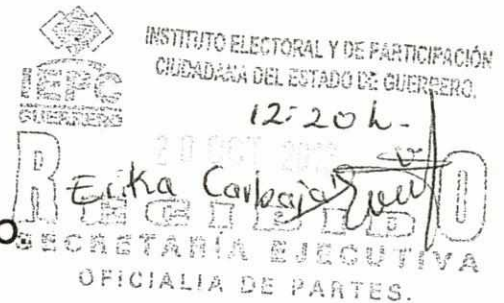 INSTITUTO ELECTORAL Y DE PARTICIPACIÓN
CIUDADANA DEL ESTADO DE GUERRERO.
IEPC
GUERRERO
12:20 h-
20 OCT
Erika Carbajal
RECIBIDO
SECRETARÍA EJECUTIVA
OFICIALIA DE PARTES.